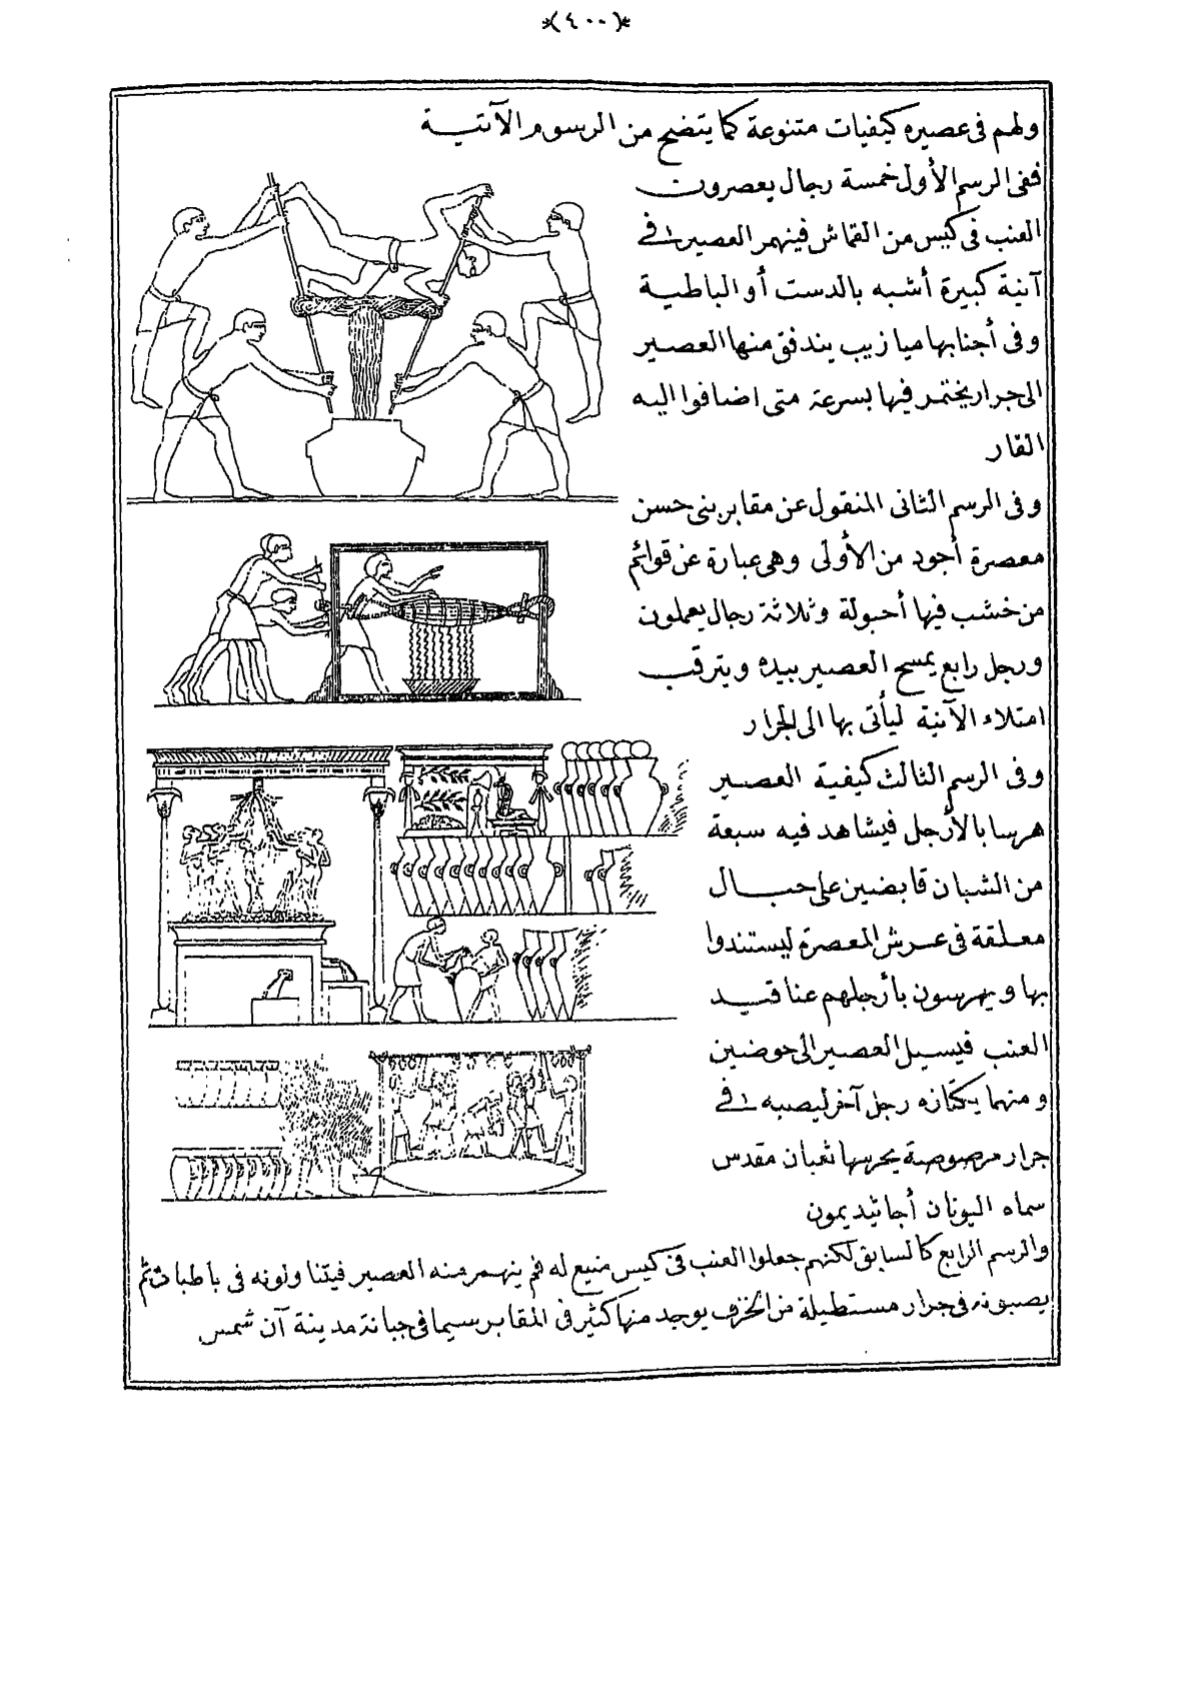 *(٤٠٠)*
ولهم فى عصيره كيفيات متنوعة كما يتضح من الرسوم الآتية
ففى الرسم الأول خمسة رجال يعصرون
العنب فى كيس من القماش فينهمر العصير فى
آنية كبيرة أشبه بالدست أو الباطية
وفى أجنابها ميازيب يندفق منها العصير
الى جرار يختمر فيها بسرعة متى اضافوا اليه
القار
وفى الرسم الثانى المنقول عن مقابر بنى حسن
معصرة أجود من الأولى وهى عبارة عن قوائم
من خشب فيها أحبولة وثلاثة رجال يعملون
ورجل رابع يمسح العصير بيده ويترقب
امتلاء الآنية ليأتى بها الى الجرار
وفى الرسم الثالث كيفية العصير
هرسا بالأرجل فيشاهد فيه سبعة
من الشبان قابضين على حبال
معلقة فى عرش المعصرة ليستندوا
بها ويهرسون بأرجلهم عناقيد
العنب فيسيل العصير الى حوضين
ومنهما يكتازه رجل آخر ليصبه فى
جرار مرصوصة يحرسها ثعبان مقدس
سماه اليونان أجاثيديمون
والرسم الرابع كالسابق لكنهم جعلوا العنب فى كيس منيع له فم ينهمر منه العصير فيتناولونه فى باطيات ثم
يصبونه فى جرار مستطيلة من الخزف يوجد منها كثير فى المقابر سيما فى جبانة مدينة آن شمس